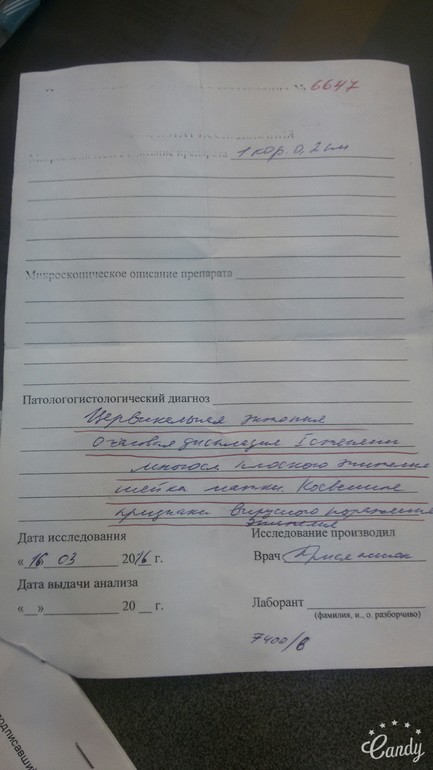 № 6647
1 кор. 0,2 см
Микроскопическое описание препарата
Патологогистологический диагноз
Цервикальная эктопия
Очаговая дисплазия I степени
многосл. плоского эпителия
шейки матки. Косвенные
признаки вирусного поражения
эпителия
Дата исследования
Исследование производил
« 16 03 2016 г.
Врач
Дата выдачи анализа
« » 20 г.
Лаборант
(фамилия, и., о. разборчиво)
7400/8
одписавший
Candy